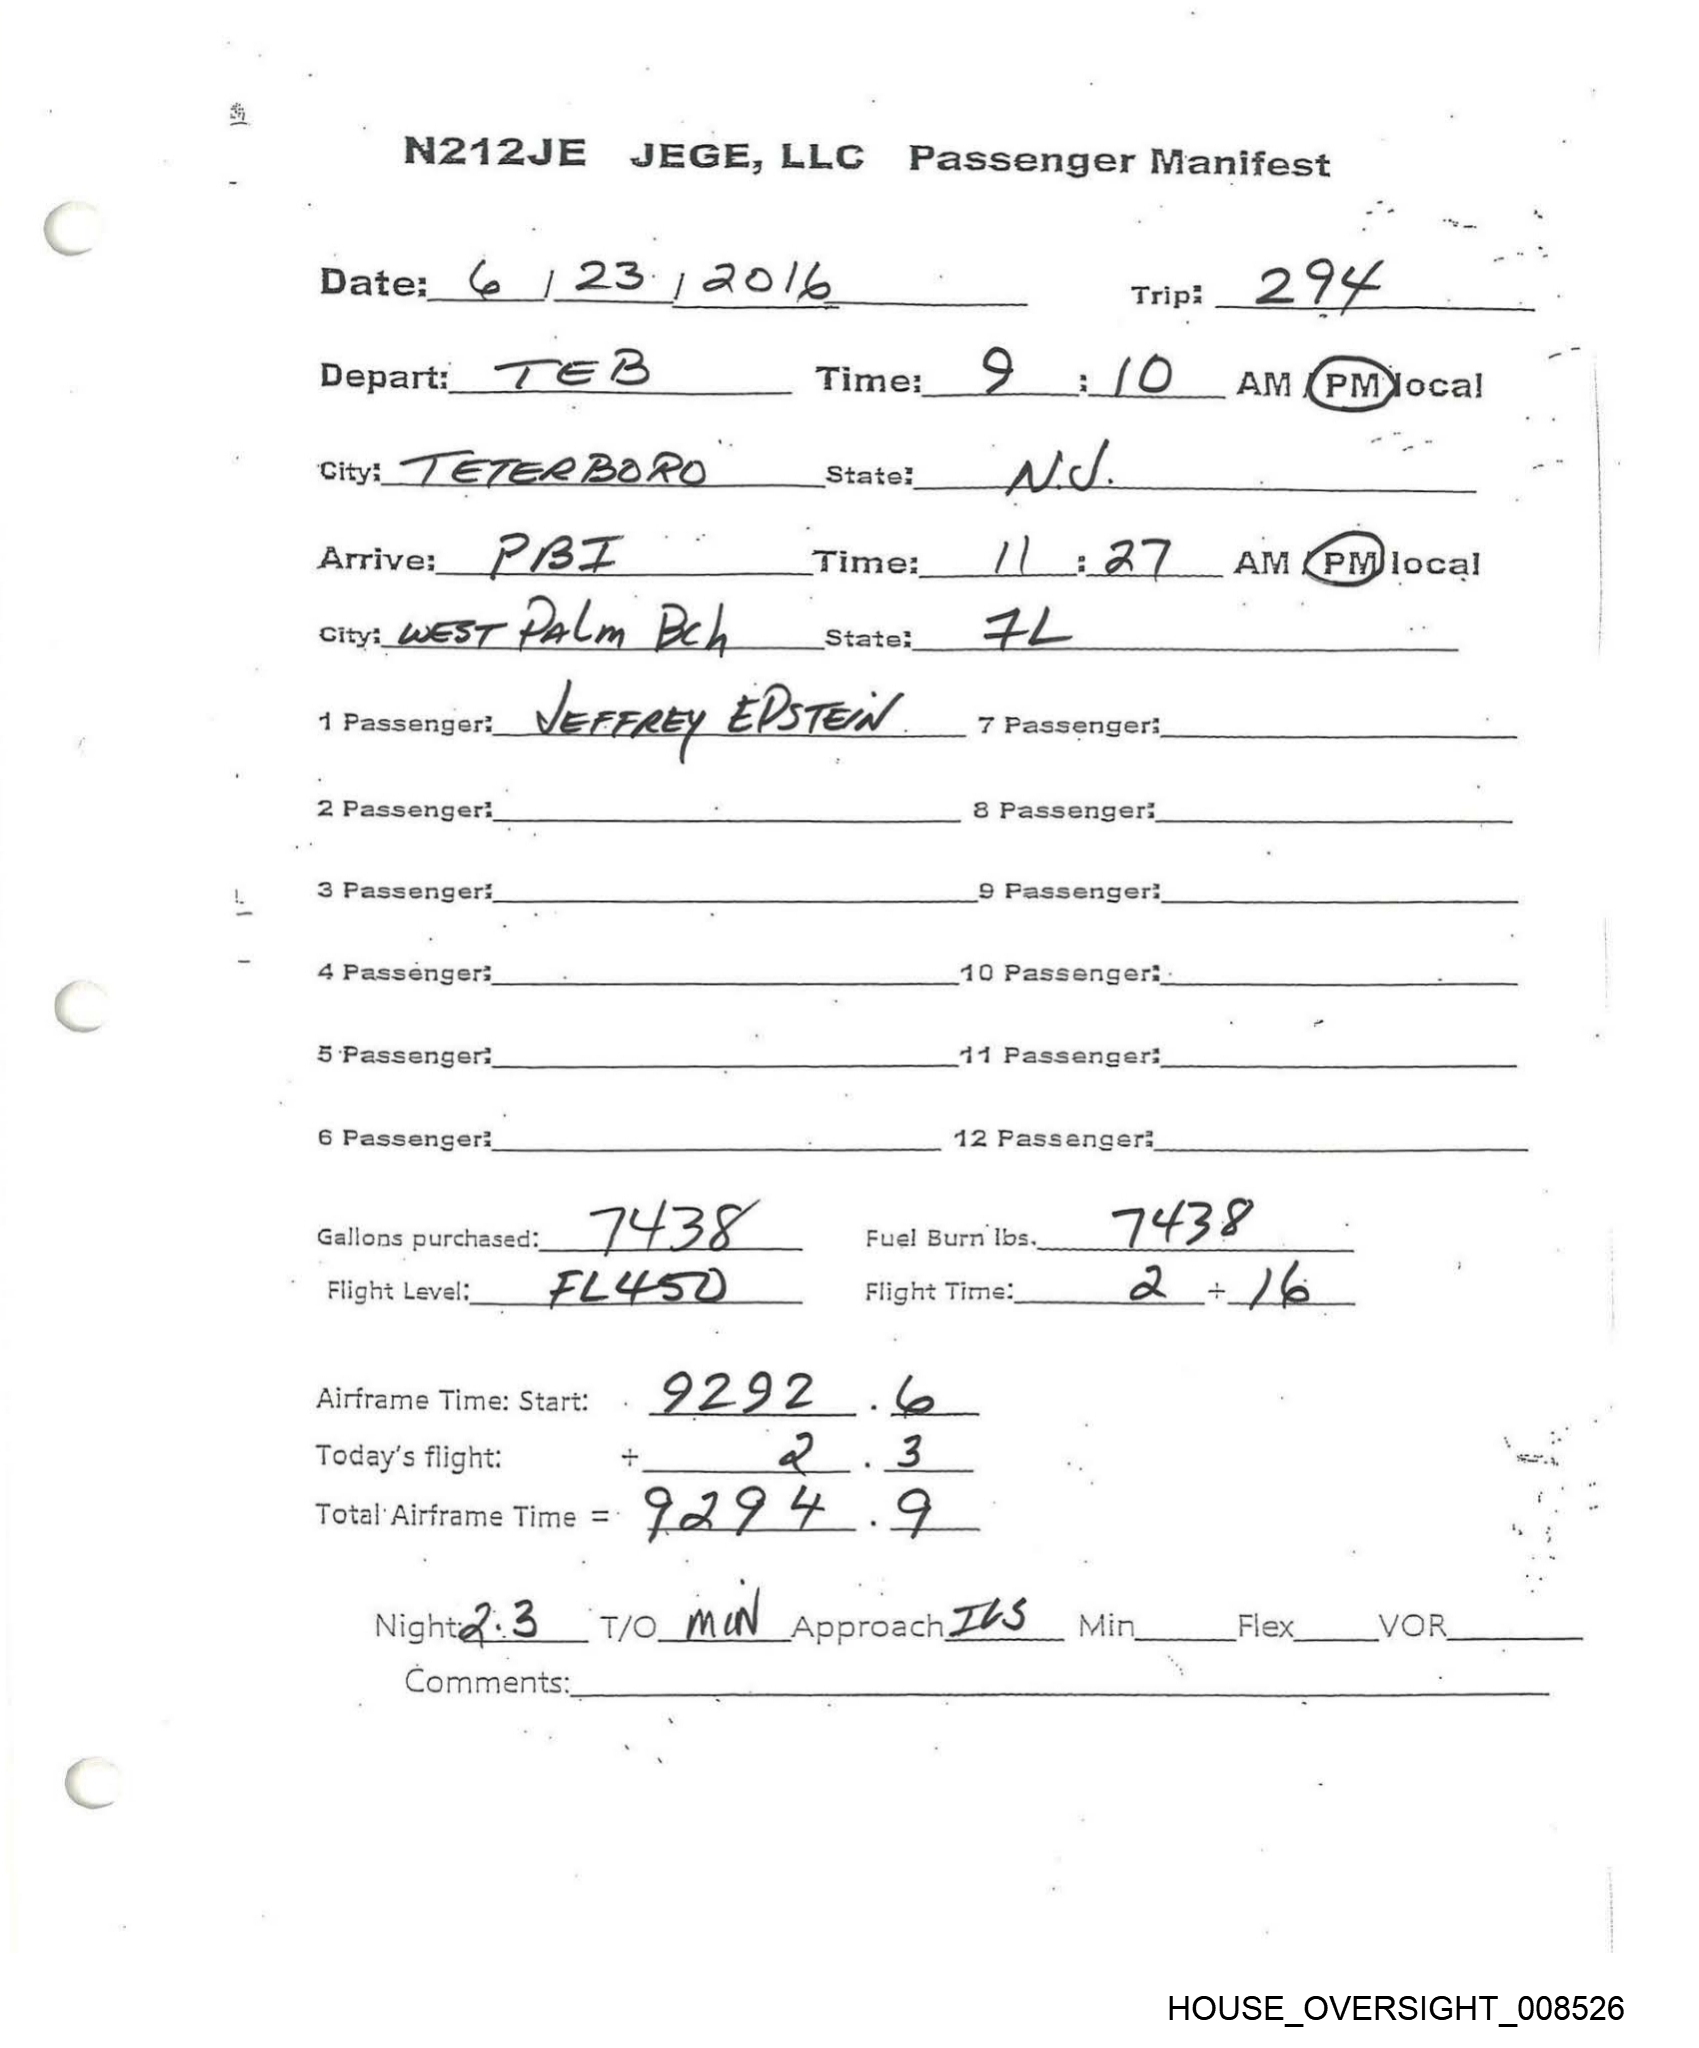 N212JE JEGE, LLC Passenger Manifest
Date: 6 / 23 / 2016 Trip: 294
Depart: TEB Time: 9 : 10 AM / PM local
City: TETERBORO State: N.J.
Arrive: PBI Time: 11 : 27 AM / PM local
City: WEST PALM Bch State: FL
1 Passenger: JEFFREY EPSTEIN 7 Passenger:
2 Passenger: 8 Passenger:
3 Passenger: 9 Passenger:
4 Passenger: 10 Passenger:
5 Passenger: 11 Passenger:
6 Passenger: 12 Passenger:
Gallons purchased: 7438 Fuel Burn lbs. 7438
Flight Level: FL450 Flight Time: 2 + 16
Airframe Time: Start: 9292 . 6
Today's flight: + 2 . 3
Total Airframe Time = 9294 . 9
Night: 2.3 T/O MIN Approach ILS Min Flex VOR
Comments:
HOUSE_OVERSIGHT_008526